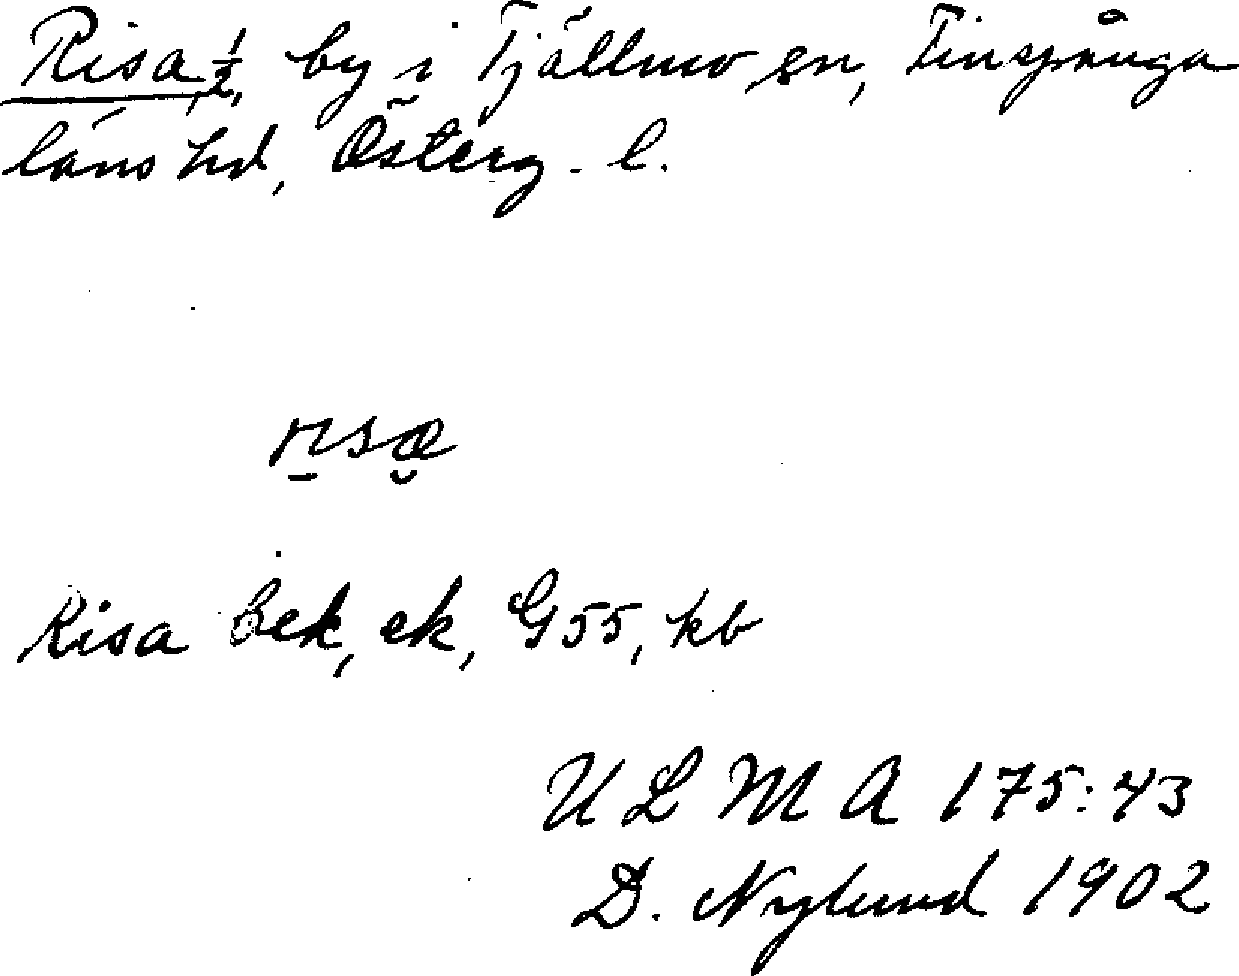 Risa ½, by i Tjällmo sn, Finspånga
läns hd, Österg. l.
risæ
Risa bek, ek, G55, kb
U L M A 175:43
D. Nylund 1902